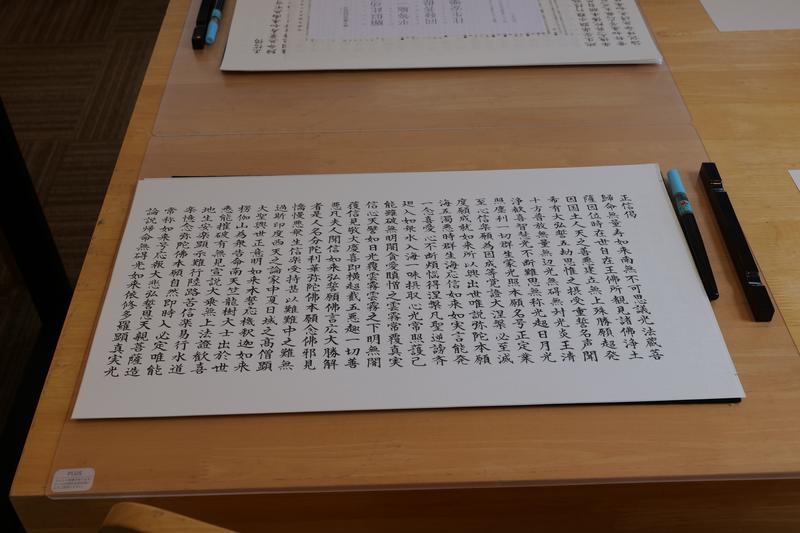 正信偈
歸命無量寿如来南無不可思議光法蔵菩
薩因位時在世自在王佛所覩見諸佛浄土
因国土人天之善悪建立無上殊勝願超発
希有大弘誓五劫思惟之摂受重誓名声聞
十方普放無量無辺光無碍無対光炎王清
浄歓喜智慧光不断難思無称光超日月光
照塵刹一切群生蒙光照本願名号正定業
至心信楽願為因成等覚證大涅槃必至滅
度願成就如来所以興出世唯説弥陀本願
海五濁悪時群生海応信如来如実言能発
一念喜愛心不断煩悩得涅槃凡聖逆謗斉
廻入如衆水入海一味摂取心光常照護已
能雖破無明闇貪愛瞋憎之雲霧常覆真実
信心天譬如日光覆雲霧雲霧之下明無闇
獲信見敬大慶喜即横超截五悪趣一切善
悪凡夫人聞信如来弘誓願佛言広大勝解
者是人名分陀利華弥陀佛本願念佛邪見
憍慢悪衆生信楽受持甚以難難中之難無
過斯印度西天之論家中夏日域之高僧顕
大聖興世正意明如来本誓応機釈迦如来
楞伽山為衆告命南天竺龍樹大士出於世
悉能摧破有無見宣説大乗無上法證歓喜
地生安楽顕示難行陸路苦信楽易行水道
楽憶念弥陀佛本願自然即時入必定唯能
常称如来号応報大悲弘誓恩天親菩薩造
論説歸命無碍光如来依修多羅顕真実光
PLUS